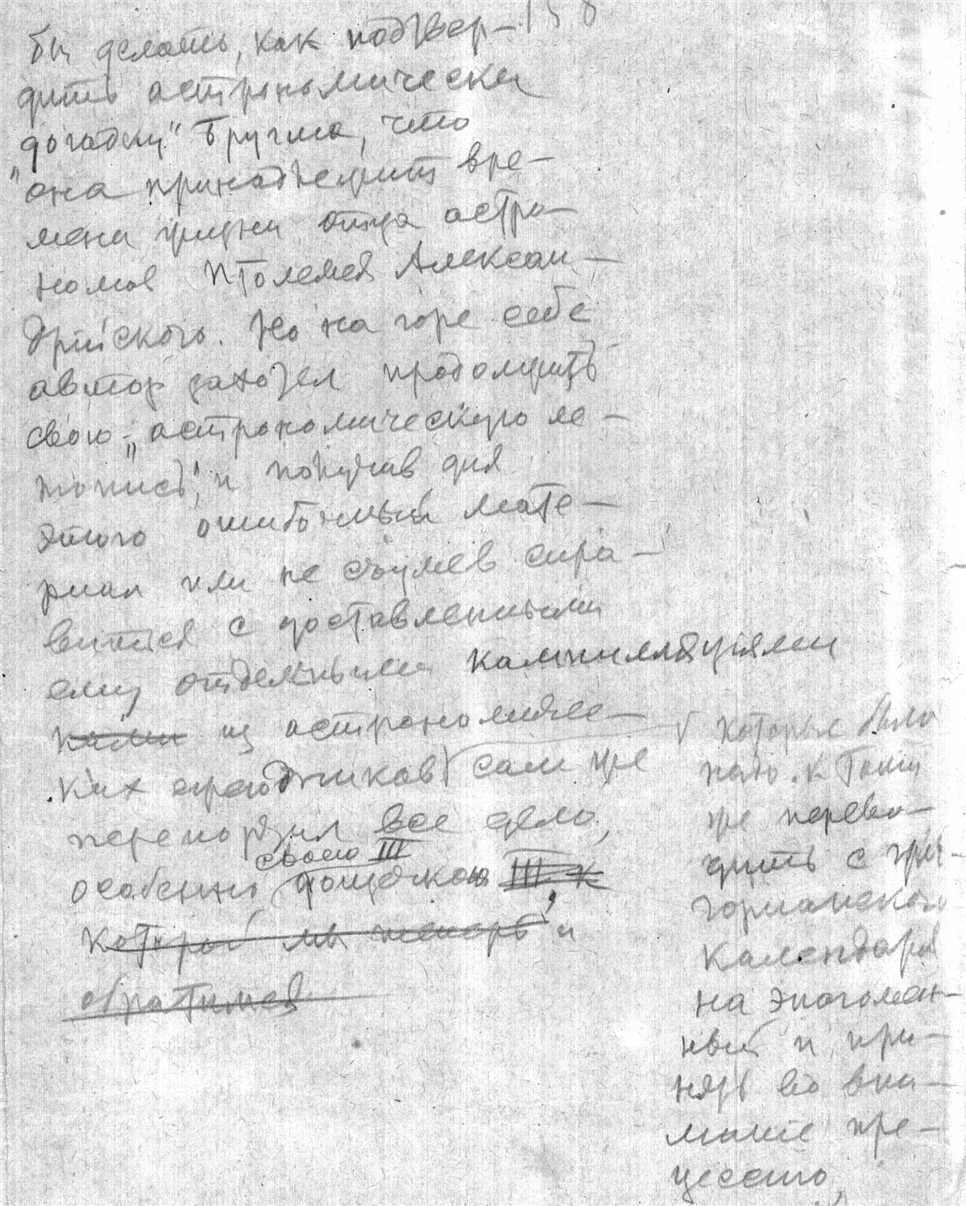 158
бы делать, как подтвер-
дить астрономически
"догадку" Бругша, что
она принадлежит вре-
мени жизни отца астро-
номов Птолемея Алексан-
дрийского. Но на горе себе
автор захотел продолжить
свою „астрономическую ле-
топись", и получив для
этого ошибочный мате-
риал или не сумев спра-
виться с доставленными
ему отдельными компиляциями
ками из астрономичес-
ких справочников сам же
перепортил все дело,
своею III
особенно дощечкою III к
которой мы теперь и
обратимся
которые было
надо к тому
же перево-
дить с гри-
горианского
календаря
на эпагомен-
ный и при-
нять во вни-
мание пре-
цессию,